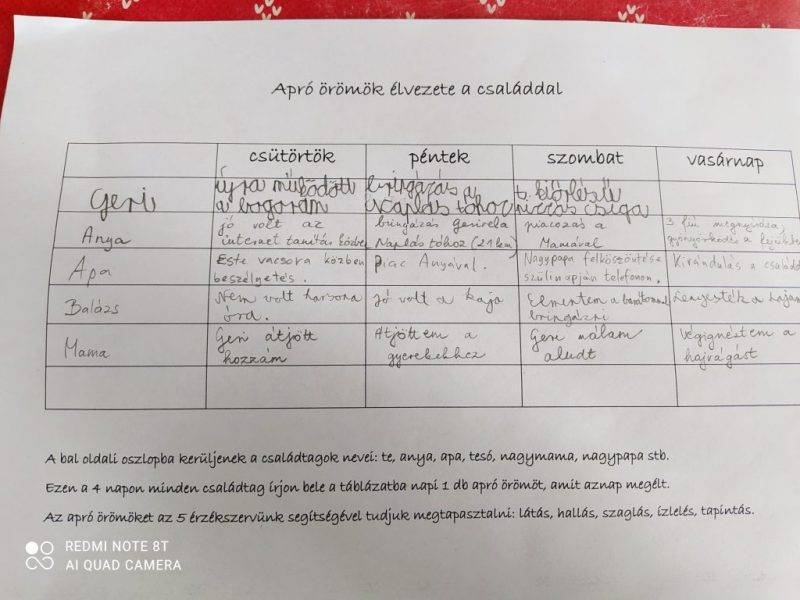 Apró örömök élvezete a családdal
csütörtök péntek szombat vasárnap
Geri újra működött a bogaram bringázás a Naplás tóhoz t. kiőrlésű pizzás csiga
Anya jó volt az internet tanítás közben bringázás Gerivel a Naplás tóhoz (21 km) piacozás a Mamával 3 fiú megnyírása, gyönyörködés a
Apa Este vacsora közben beszélgetés. Piac Anyával. Nagypapa felköszöntése szülinapján telefonon. Kirándulás a család
Balázs Nem volt harsona óra. Jó volt a kaja Elmentem a barátommal bringázni Lenyesték a hajam
Mama Geri átjött hozzám Átjöttem a gyerekekhez Geri nálam aludt Végignéztem a hajvágást
A bal oldali oszlopba kerüljenek a családtagok nevei: te, anya, apa, tesó, nagymama, nagypapa stb.
Ezen a 4 napon minden családtag írjon bele a táblázatba napi 1 db apró örömöt, amit aznap megélt.
Az apró örömöket az 5 érzékszervünk segítségével tudjuk megtapasztalni: látás, hallás, szaglás, ízlelés, tapintás.
REDMI NOTE 8T
AI QUAD CAMERA